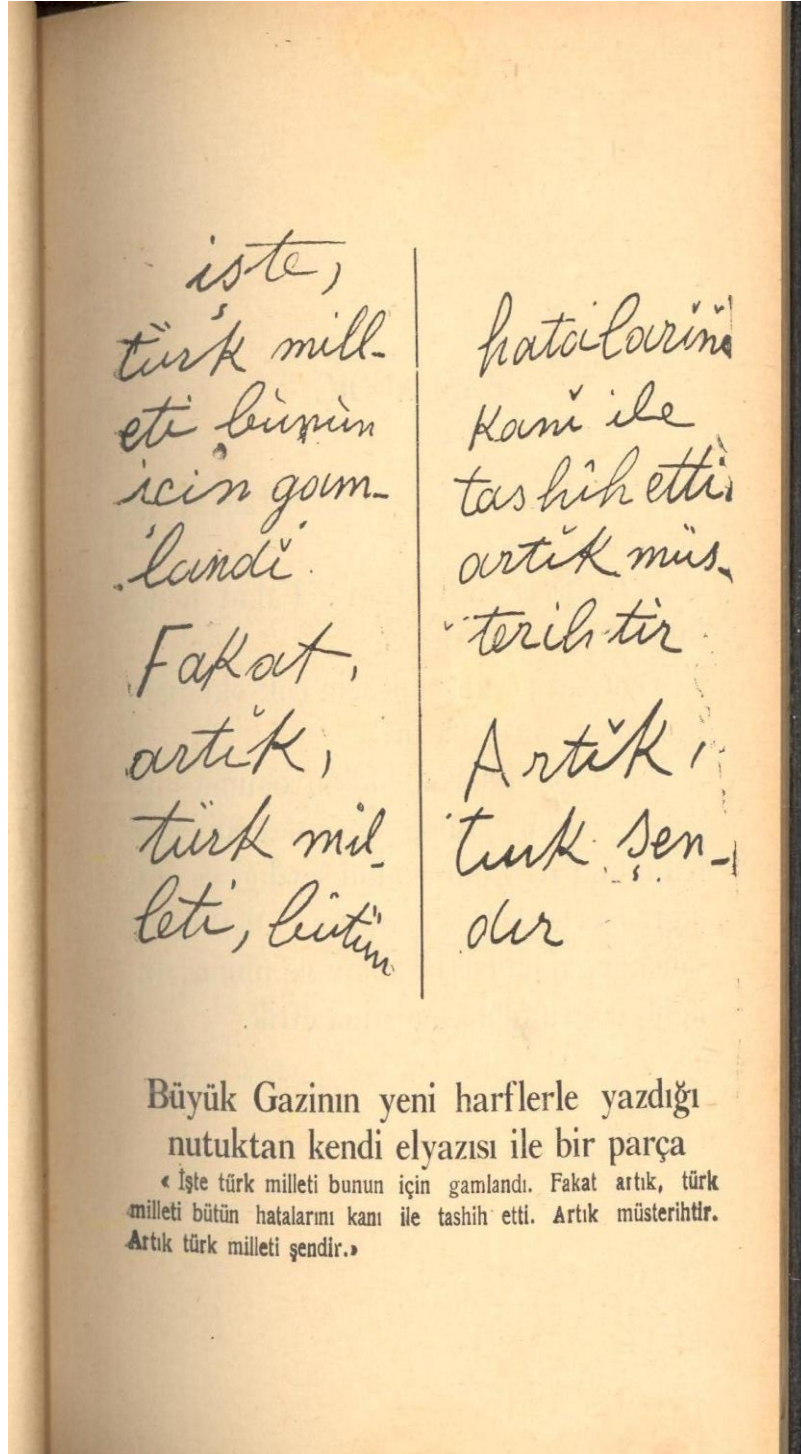 işte,
türk mill-
eti bünün
için gam-
landĭ.
Fakat,
artĭk,
türk mil-
leti, bütün
hatalarĭnĭ
kanĭ ile
tashih etti.
artĭk müs-
terih tir.
Artĭk,
turk şen-
dır
Büyük Gazinın yeni harflerle yazdığı
nutuktan kendi elyazısı ile bir parça
« İşte türk milleti bunun için gamlandı. Fakat artık, türk
milleti bütün hatalarını kanı ile tashih etti. Artık müsterihtir.
Artık türk milleti şendir.»